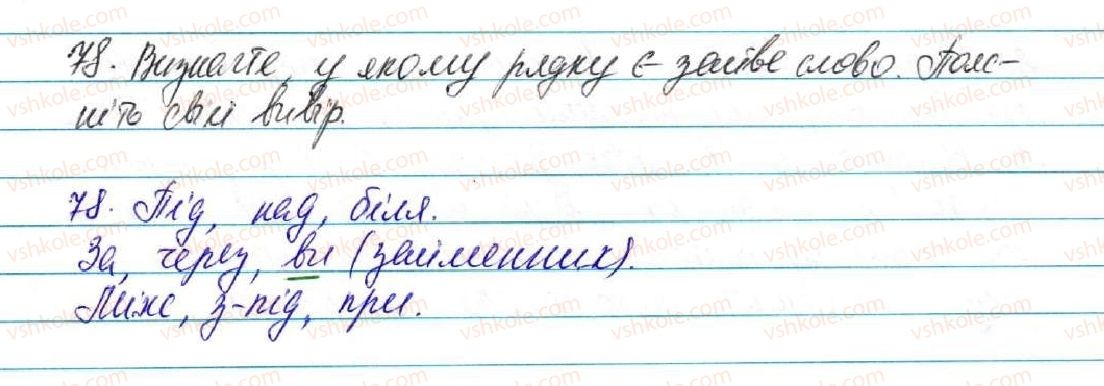 78. Визначте, у якому рядку є зайве слово. Пояс-
ніть свій вибір.
78. Під, над, біля.
За, через, ви (займенник).
Між, з-під, при.